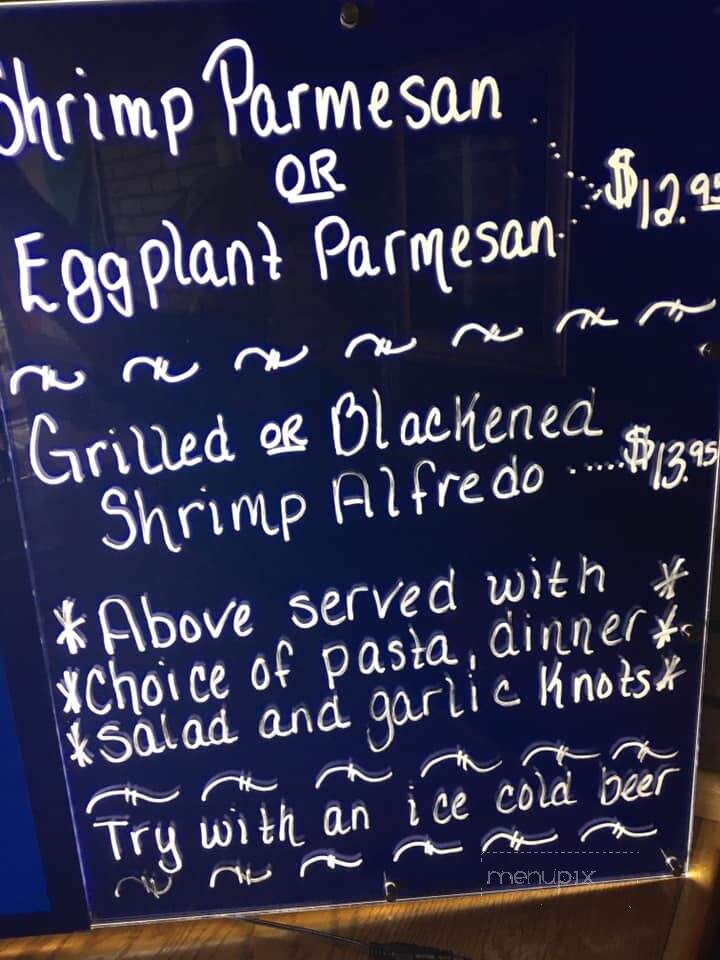 Shrimp Parmesan
OR
Eggplant Parmesan $12.95
Grilled OR Blackened
Shrimp Alfredo ..... $13.95
*Above served with *
*Choice of pasta, dinner*
*Salad and garlic Knots*
Try with an ice cold beer
menupix